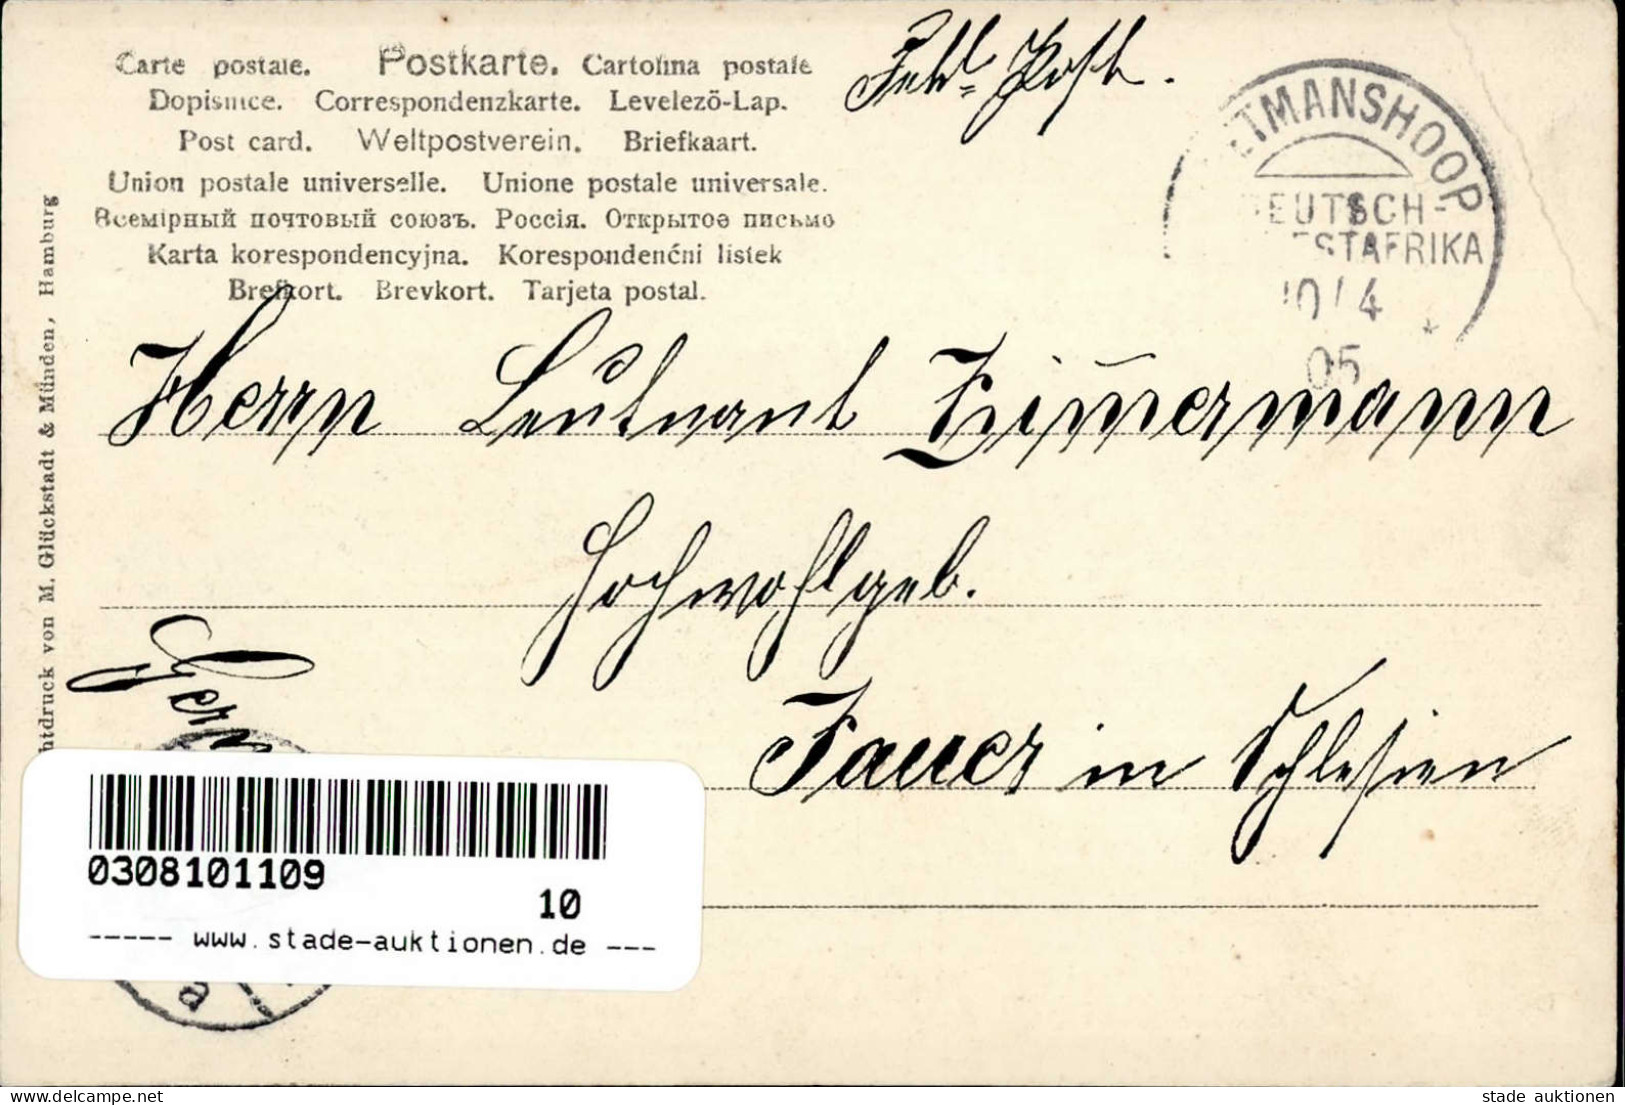 Carte postale. Postkarte. Cartolina postale
Dopisnice. Correspondenzkarte. Levelezö-Lap.
Post card. Weltpostverein. Briefkaart.
Union postale universelle. Unione postale universale.
Всемірный почтовый союзъ. Россія. Открытое письмо
Karta korespondencyjna. Korespondenční listek
Brefkort. Brevkort. Tarjeta postal.
Feld=Post.
ETMANSHOOP
DEUTSCH-
ESTAFRIKA
10/4
05
Herrn Leutnant Zim̄ermann
Hochwohlgeb.
Jauer in Schlesien
Germ
htdruck von M. Glückstadt & Münden, Hamburg
0308101109
10
----- www.stade-auktionen.de ---
a
delcampe.net
stade auktionen